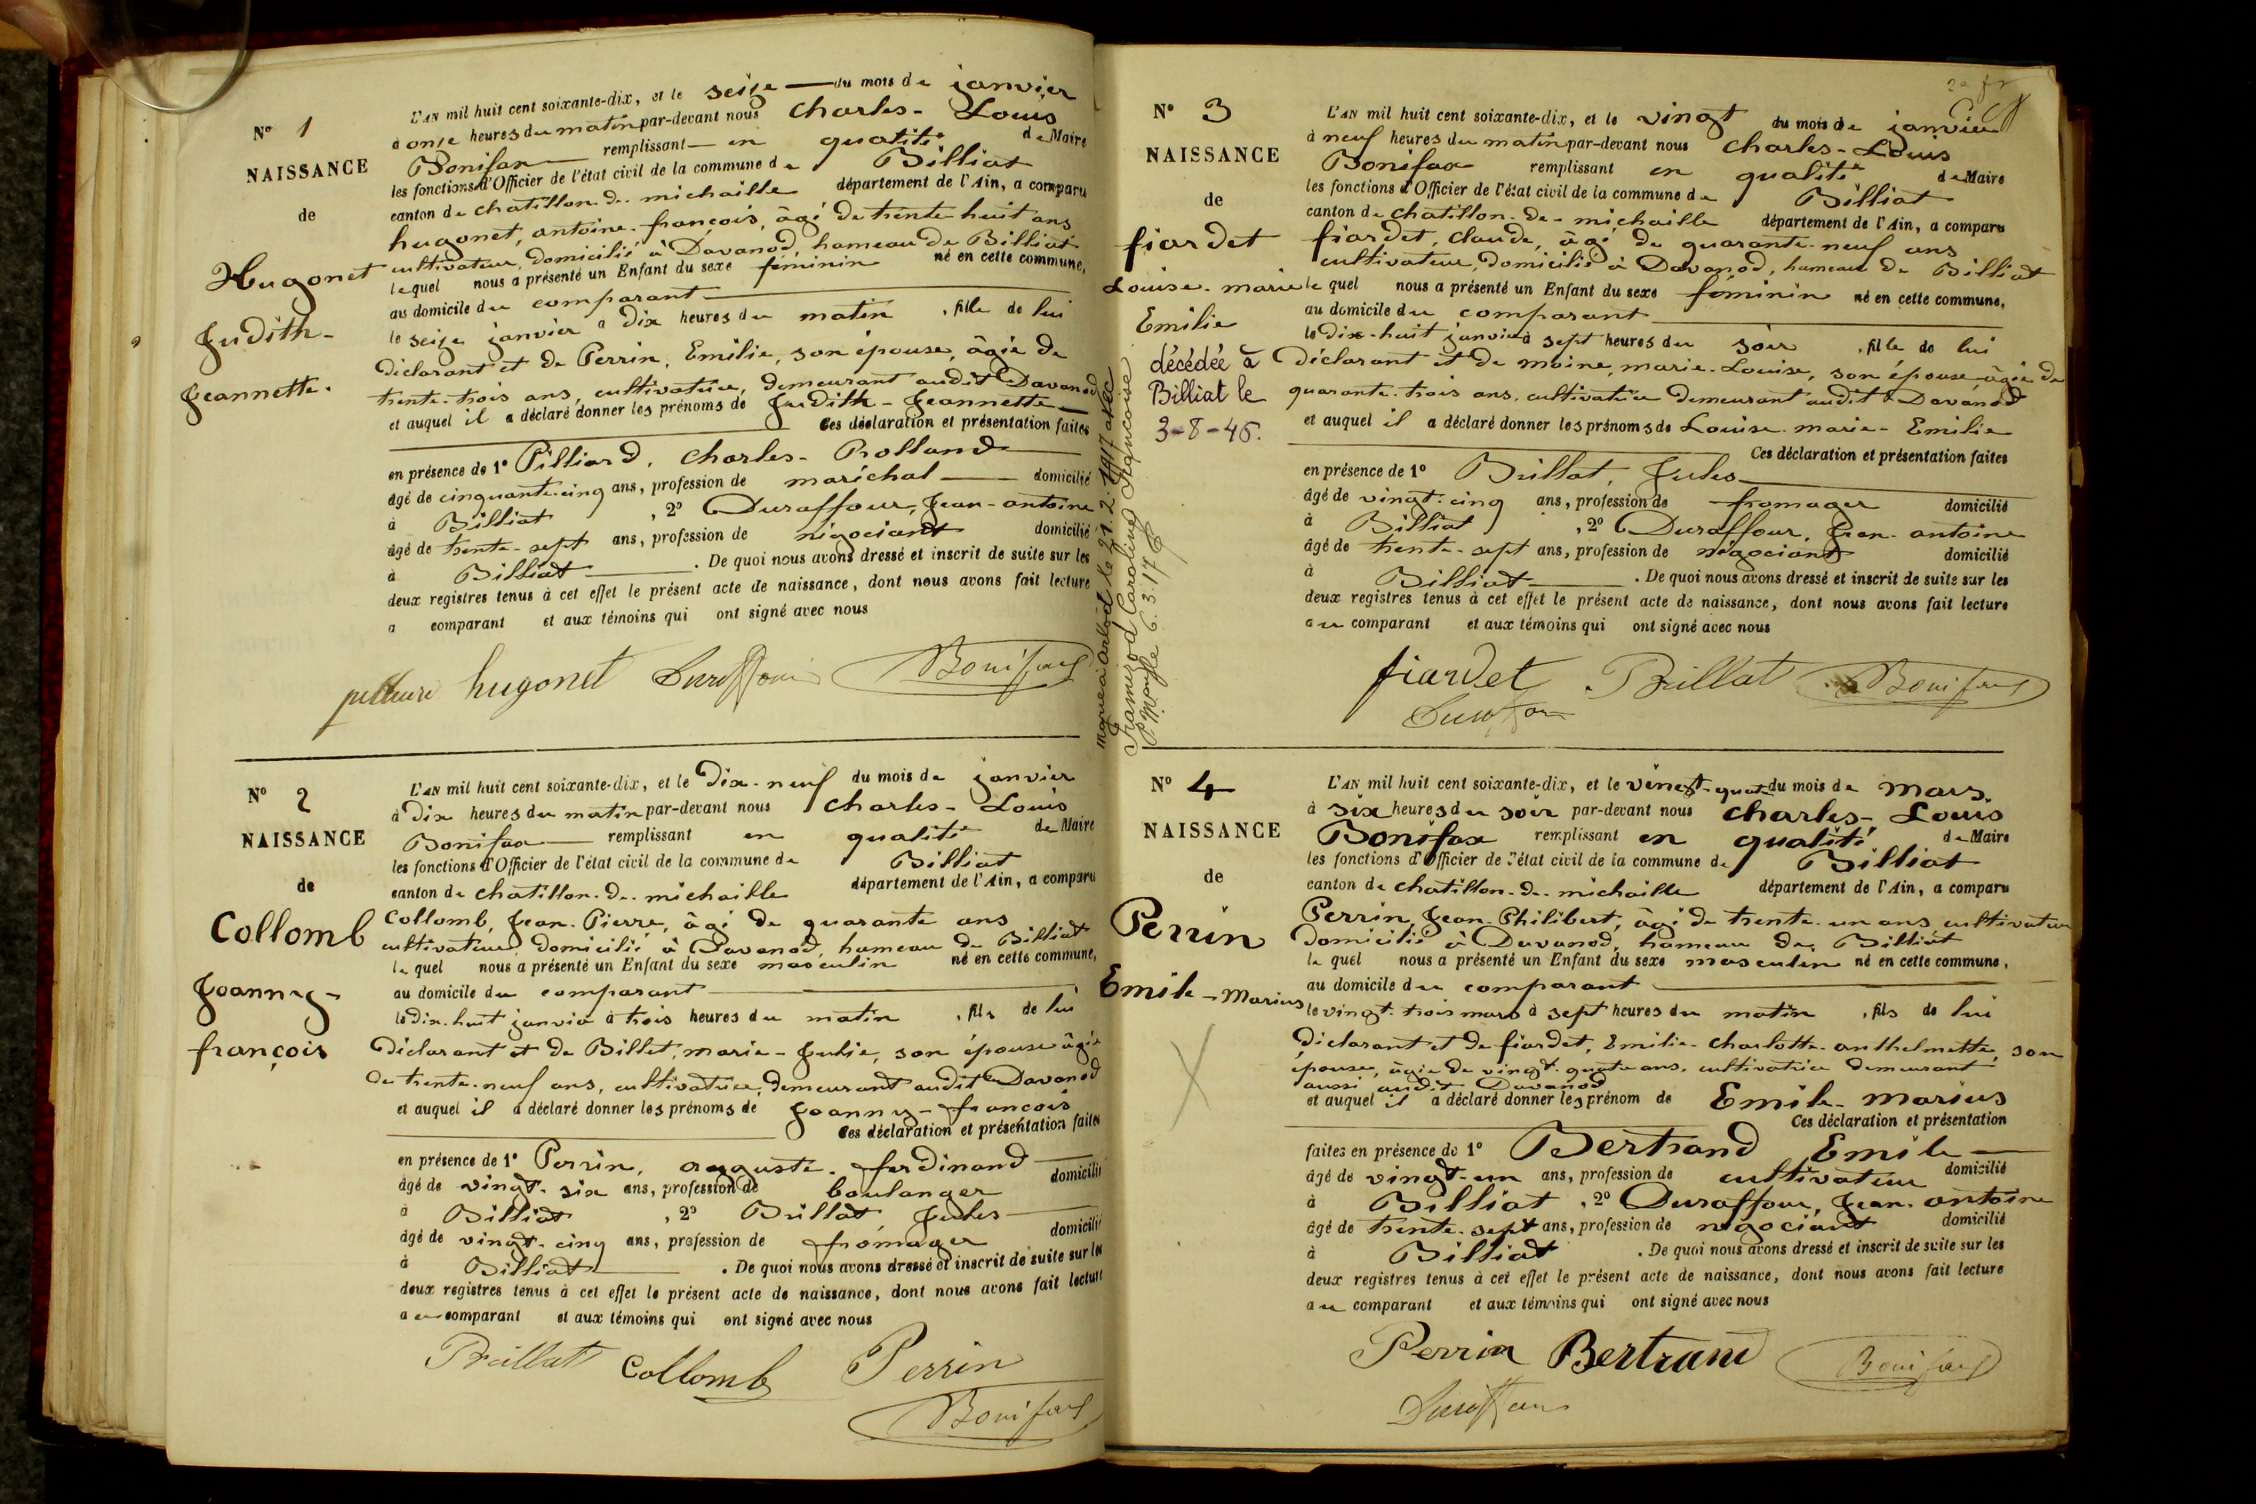 N° 1
NAISSANCE
de
Hugonet
Judith-
Jeannette.
L'AN mil huit cent soixante-dix, et le seize — du mois de janvier
à onze heures du matin par-devant nous Charles-Louis
Bonifax — remplissant — en qualité de Maire
les fonctions d'Officier de l'état civil de la commune de Billiat
canton de Chatillon-de-michaille département de l'Ain, a comparu
hugonet, antoine-françois, âgé de trente huit ans
cultivateur, domicilié à Davanod, hameau de Billiat
lequel nous a présenté un Enfant du sexe féminin né en cette commune,
au domicile du comparant
le seize janvier à dix heures du matin, fille de lui
déclarant et de Perrin, Emilie, son épouse, âgée de
trente-trois ans, cultivatrice, demeurant audit Davanod
et auquel il a déclaré donner les prénoms de Judith-Jeannette
Ces déclaration et présentation faites
en présence de 1° Pilliard, Charles-Rolland
âgé de cinquante-cinq ans, profession de maréchal — domicilié
à Billiat, 2° Duraffour, Jean-antoine
âgé de trente-sept ans, profession de négociant domicilié
à Billiat. De quoi nous avons dressé et inscrit de suite sur les
deux registres tenus à cet effet le présent acte de naissance, dont nous avons fait lecture
a comparant et aux témoins qui ont signé avec nous
hugonet Duraffour Bonifax
N° 2
NAISSANCE
de
Collomb
Joanny-
françois
L'AN mil huit cent soixante-dix, et le Dix-neuf du mois de janvier
à Dix heures du matin par-devant nous Charles-Louis
Bonifax — remplissant en qualité de Maire
les fonctions d'Officier de l'état civil de la commune de Billiat
canton de Chatillon-de-michaille département de l'Ain, a comparu
Collomb, Jean-Pierre, âgé de quarante ans
cultivateur, domicilié à Davanod, hameau de Billiat
lequel nous a présenté un Enfant du sexe masculin né en cette commune,
au domicile du comparant
le dix-huit janvier à trois heures du matin, fils de lui
déclarant et de Billet, marie-Julie, son épouse âgée
de trente-neuf ans, cultivatrice, demeurant audit Davanod
et auquel il a déclaré donner les prénoms de Joanny-françois
Ces déclaration et présentation faites
en présence de 1° Perrin, auguste-ferdinand
âgé de vingt-six ans, profession de boulanger domicilié
à Billiat, 2° Brillat, Jules
âgé de vingt-cinq ans, profession de fromager domicilié
à Billiat. De quoi nous avons dressé et inscrit de suite sur les
deux registres tenus à cet effet le présent acte de naissance, dont nous avons fait lecture
au comparant et aux témoins qui ont signé avec nous
Brillat Collomb Perrin
Bonifax
N° 3
NAISSANCE
de
fiardet
Louise-marie
Emilie
décédée à
Billiat le
3-8-45.
Mariée à Arlod le 21.2.1917 avec
Caroline Françoise
6.3.17
20 fr
L'AN mil huit cent soixante-dix, et le vingt du mois de janvier
à neuf heures du matin par-devant nous Charles-Louis
Bonifax remplissant en qualité de Maire
les fonctions d'Officier de l'état civil de la commune de Billiat
canton de Chatillon-de-michaille département de l'Ain, a comparu
fiardet, Claude, âgé de quarante-neuf ans
cultivateur, domicilié à Davanod, hameau de Billiat
lequel nous a présenté un Enfant du sexe féminin né en cette commune,
au domicile du comparant
le dix-huit janvier à sept heures du soir, fille de lui
déclarant et de moine, marie-Louise, son épouse, âgée de
quarante-trois ans, cultivatrice demeurant audit Davanod
et auquel il a déclaré donner les prénoms de Louise-marie-Emilie
Ces déclaration et présentation faites
en présence de 1° Brillat, Jules
âgé de vingt-cinq ans, profession de fromager domicilié
à Billiat, 2° Duraffour, Jean-antoine
âgé de trente-sept ans, profession de négociant domicilié
à Billiat. De quoi nous avons dressé et inscrit de suite sur les
deux registres tenus à cet effet le présent acte de naissance, dont nous avons fait lecture
au comparant et aux témoins qui ont signé avec nous
fiardet Brillat Bonifax
Duraffour
N° 4
NAISSANCE
de
Perrin
Emile-Marius
L'AN mil huit cent soixante-dix, et le vingt-quatre du mois de mars
à six heures du soir par-devant nous Charles-Louis
Bonifax remplissant en qualité de Maire
les fonctions d'Officier de l'état civil de la commune de Billiat
canton de Chatillon-de-michaille département de l'Ain, a comparu
Perrin, Jean-Philibert, âgé de trente-un ans, cultivateur
domicilié à Davanod, hameau de Billiat
lequel nous a présenté un Enfant du sexe masculin né en cette commune,
au domicile du comparant
le vingt-trois mars à sept heures du matin, fils de lui
déclarant et de fiardet, Emilie-Charlotte-anthelmette, son
épouse, âgée de vingt-quatre ans, cultivatrice demeurant
aussi audit Davanod
et auquel il a déclaré donner les prénom de Emile-Marius
Ces déclaration et présentation
faites en présence de 1° Bertrand Emile
âgé de vingt-un ans, profession de cultivateur domicilié
à Billiat, 2° Duraffour, Jean-antoine
âgé de trente-sept ans, profession de négociant domicilié
à Billiat. De quoi nous avons dressé et inscrit de suite sur les
deux registres tenus à cet effet le présent acte de naissance, dont nous avons fait lecture
au comparant et aux témoins qui ont signé avec nous
Perrin Bertrand Bonifax
Duraffour